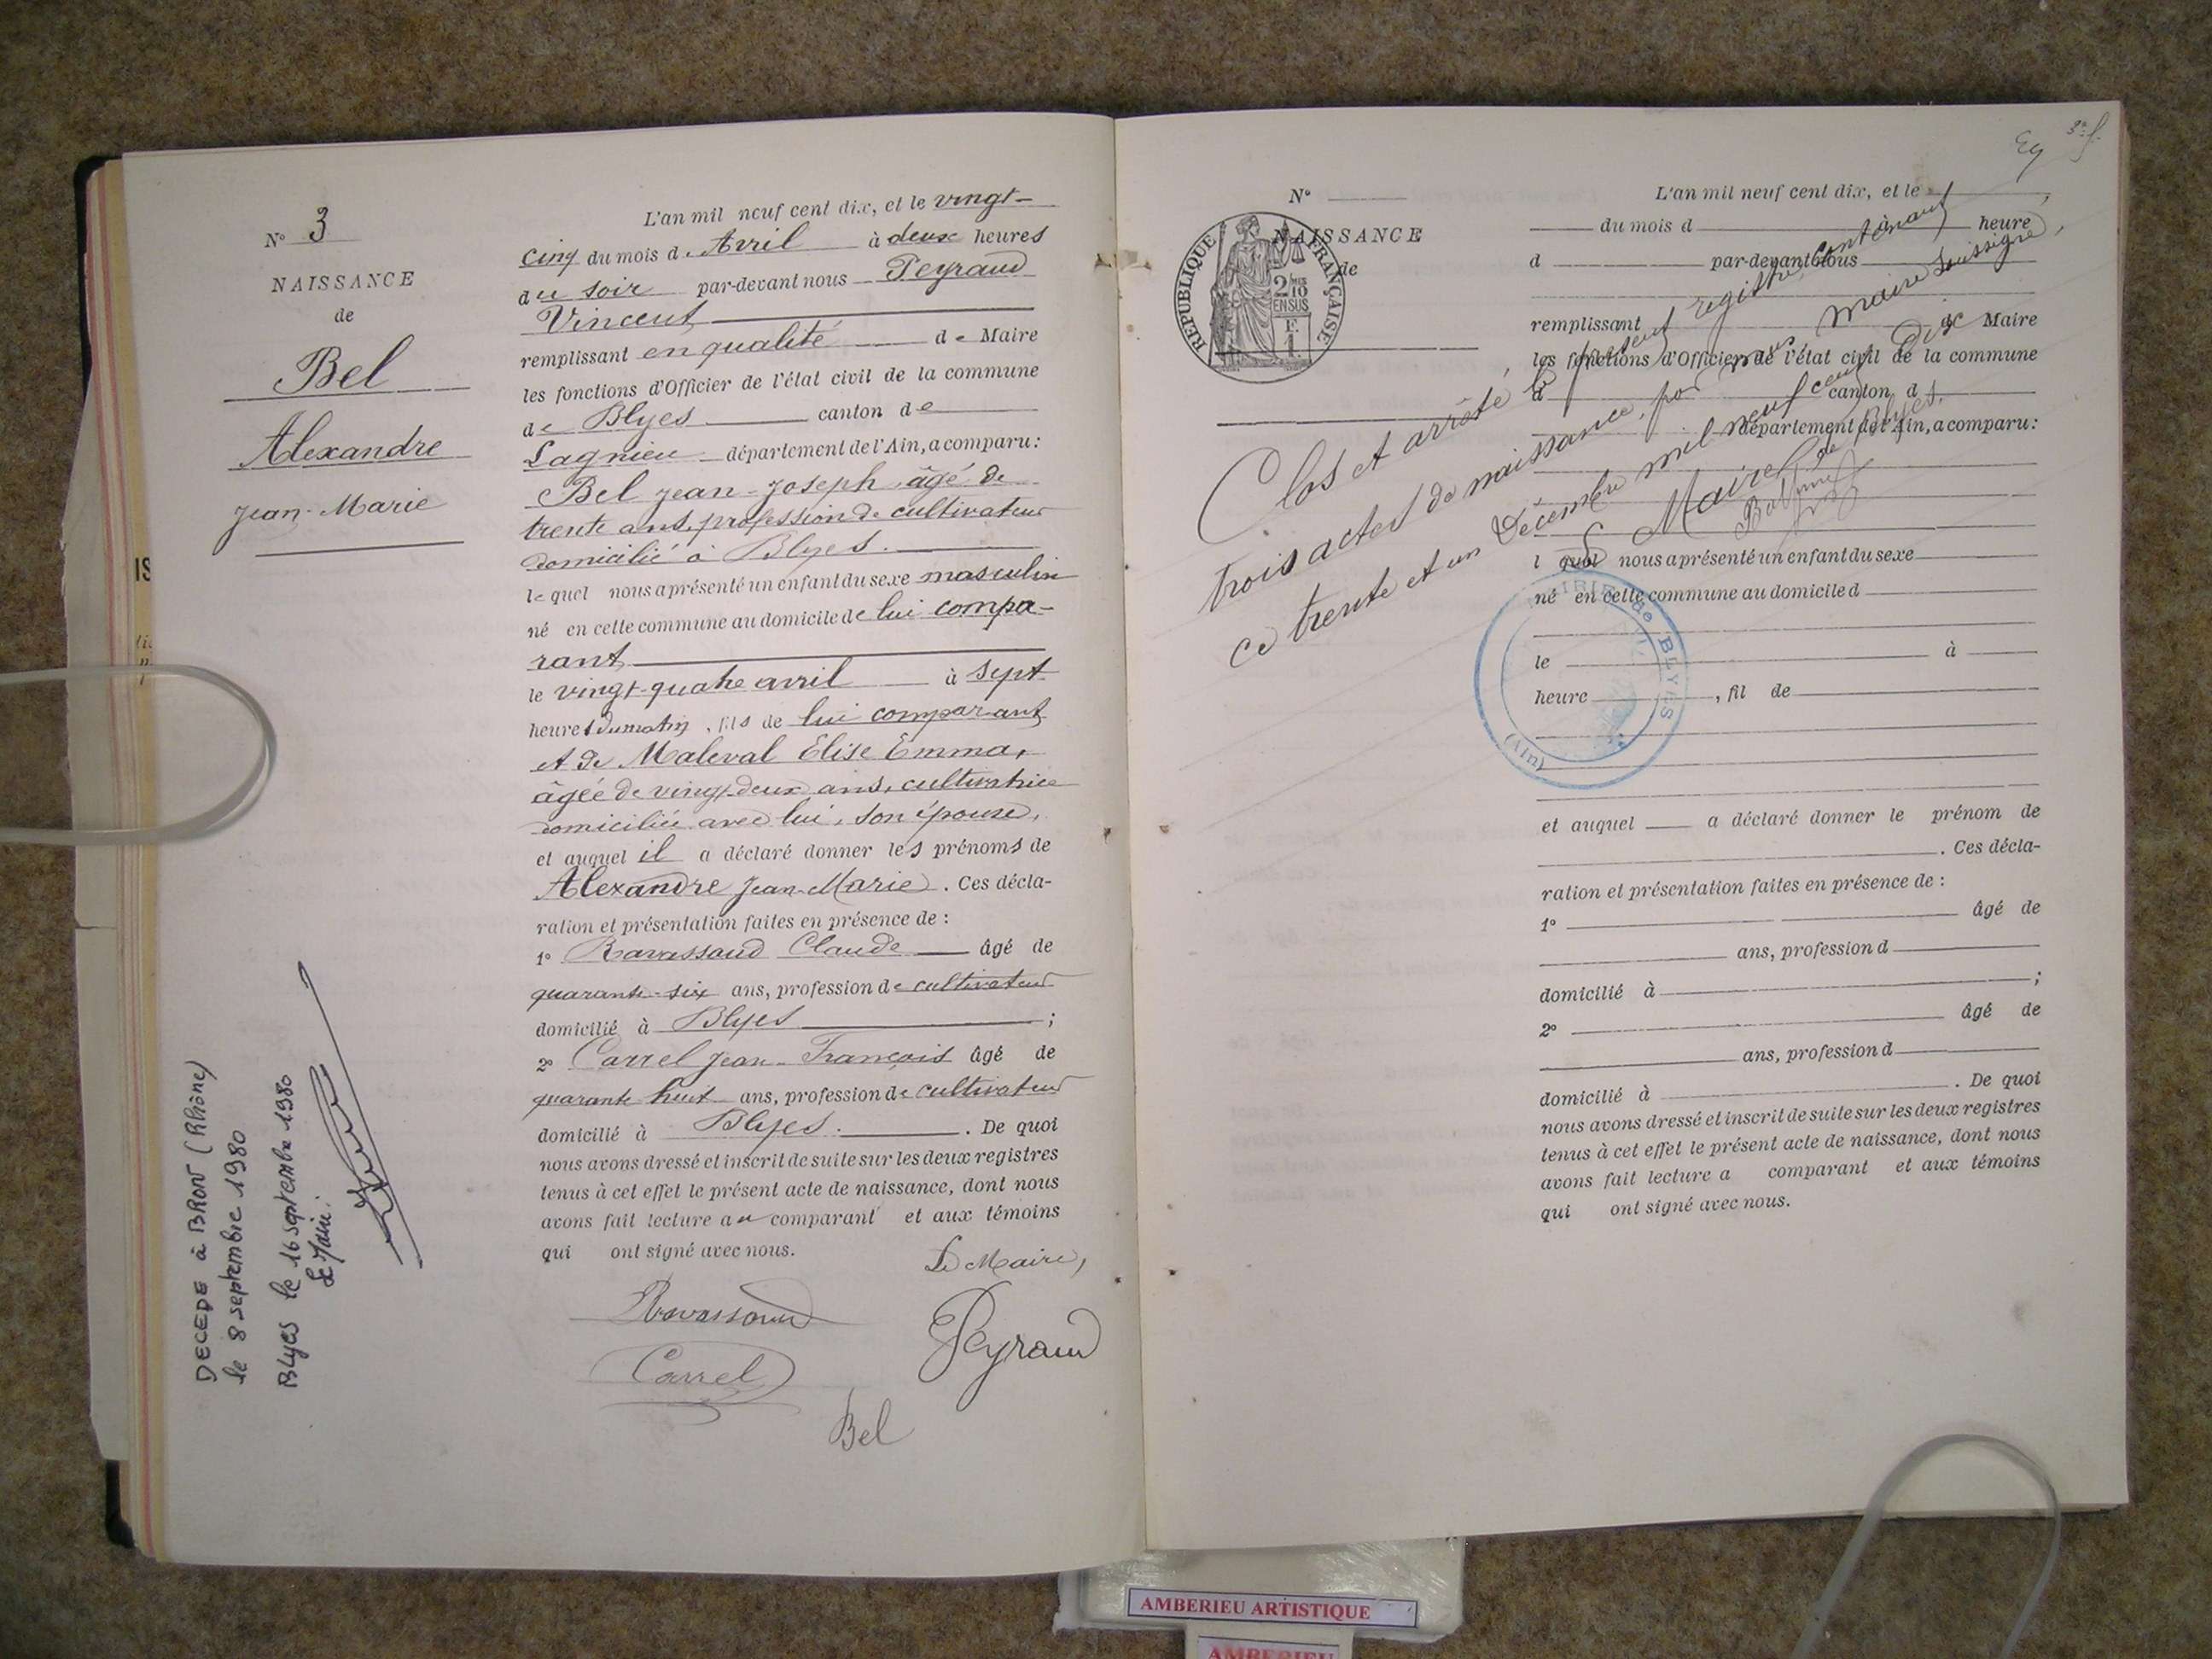 N° 3
NAISSANCE
de
Bel
Alexandre
Jean-Marie
DECEDE à BRON (Rhône)
le 8 septembre 1980
Blyes le 16 septembre 1980
Le Maire:
L'an mil neuf cent dix, et le vingt-
cinq du mois d. Avril à deux heures
du soir par-devant nous Peyraud
Vincent
remplissant en qualité de Maire
les fonctions d'Officier de l'état civil de la commune
de Blyes canton de
Lagnieu département de l'Ain, a comparu:
Bel Jean-Joseph, âgé de
trente ans, profession de cultivateur
domicilié à Blyes.
lequel nous a présenté un enfant du sexe masculin
né en cette commune au domicile de lui compa-
rant
le vingt-quatre avril à sept
heures du matin, fils de lui comparant
et de Maleval Elise Emma,
âgée de vingt-deux ans, cultivatrice
domiciliée avec lui, son épouse,
et auquel il a déclaré donner les prénoms de
Alexandre Jean-Marie. Ces décla-
ration et présentation faites en présence de :
1° Ravassoud Claude âgé de
quarante-six ans, profession de cultivateur
domicilié à Blyes ;
2° Carrel Jean-François âgé de
quarante huit ans, profession de cultivateur
domicilié à Blyes. . De quoi
nous avons dressé et inscrit de suite sur les deux registres
tenus à cet effet le présent acte de naissance, dont nous
avons fait lecture au comparant et aux témoins
qui ont signé avec nous.
Le Maire,
Ravassoud
Peyraud
Carrel
Bel
3e f.
N°
NAISSANCE
de
RÉPUBLIQUE FRANÇAISE
2/10
EN SUS
1 F.
L'an mil neuf cent dix, et le
du mois d à heure
d par-devant nous
remplissant de Maire
les fonctions d'Officier de l'état civil de la commune
d canton d
département de l'Ain, a comparu:
Clos et arrêté le présent registre contenant
trois actes de naissance, par nous maire soussigné,
ce trente et un Décembre mil neuf cent dix
Le Maire de Blyes,
l quel nous a présenté un enfant du sexe
né en cette commune au domicile d
MAIRIE de BLYES
(Ain)
le à
heure , fil de
et auquel a déclaré donner le prénom de
. Ces décla-
ration et présentation faites en présence de :
1° âgé de
ans, profession d
domicilié à ;
2° âgé de
ans, profession d
domicilié à . De quoi
nous avons dressé et inscrit de suite sur les deux registres
tenus à cet effet le présent acte de naissance, dont nous
avons fait lecture a comparant et aux témoins
qui ont signé avec nous.
AMBERIEU ARTISTIQUE
AMBERIEU